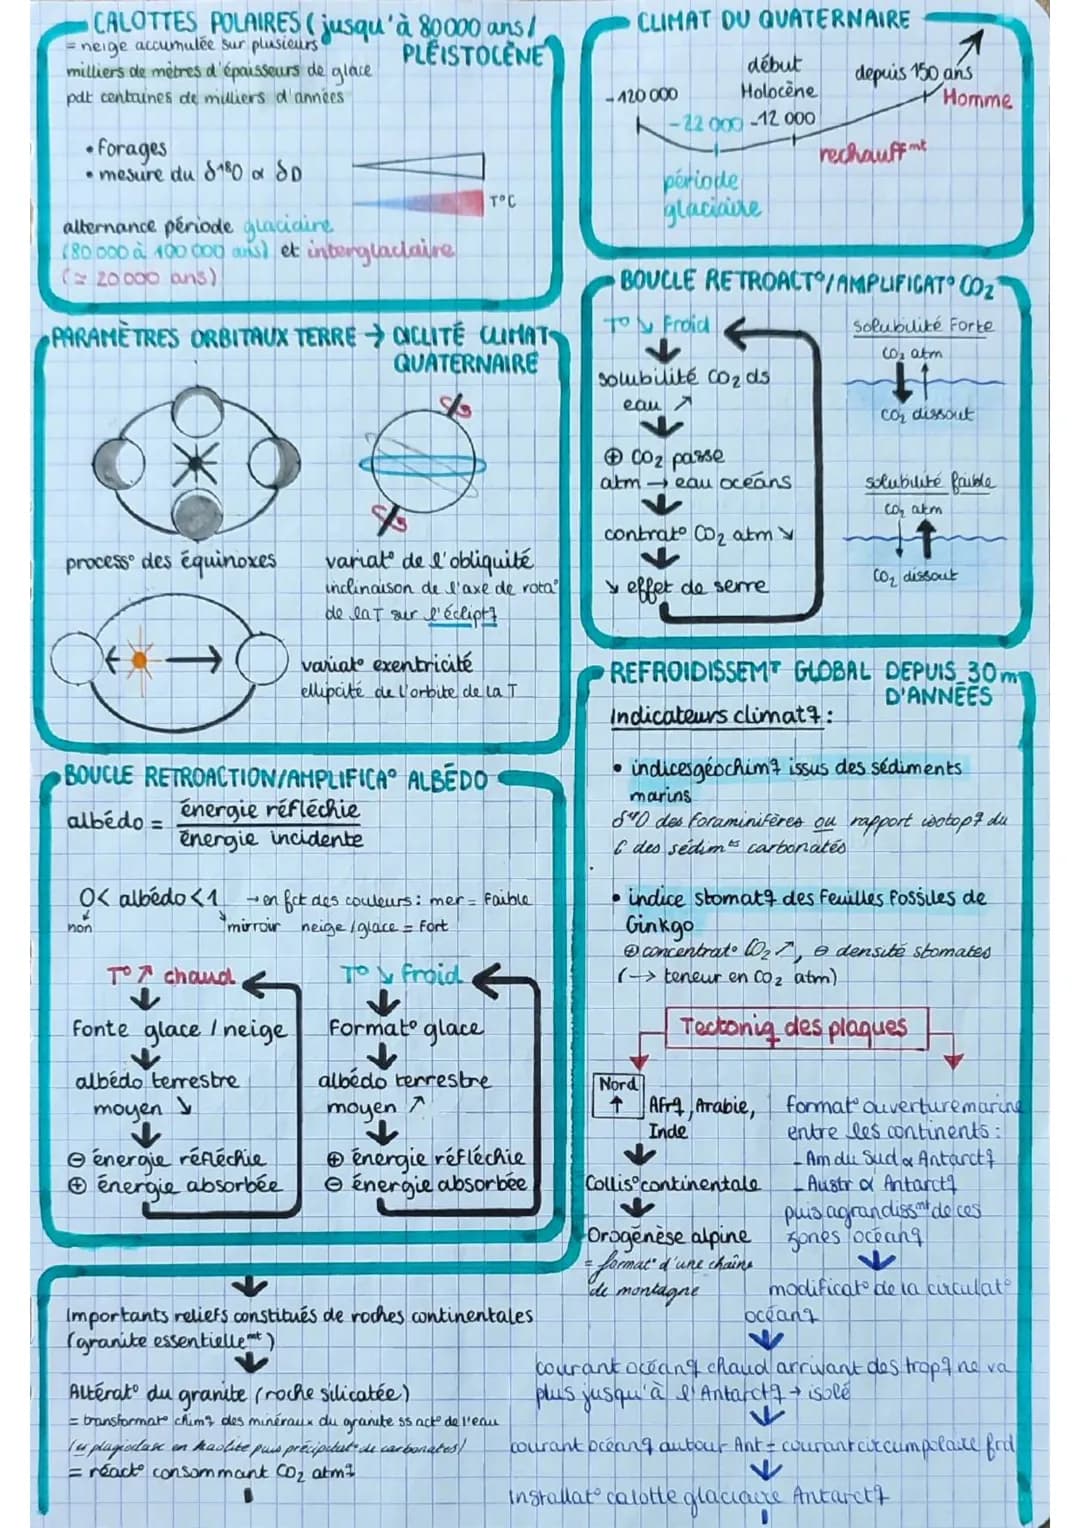 CALOTTES POLAIRES (jusqu'à 80000 ans /
PLÉISTOCÈNE
= neige accumulée sur plusieurs
milliers de mètres d'épaisseurs de glace
pdt centaines de milliers d'années
• Forages
• mesure du δ¹⁸O & δD
T°C
alternance période glaciaire
(80 000 à 100 000 ans) et interglaciaire
(≃ 20 000 ans)
CLIMAT DU QUATERNAIRE
-120 000
-22 000
période
glaciaire
début
Holocène
-12 000
depuis 150 ans
Homme
rechauffmt
PARAMÈTRES ORBITAUX TERRE → CICLITÉ CLIMAT
QUATERNAIRE
process° des équinoxes
variat° de l'obliquité
inclinaison de l'axe de rota°
de la T sur l'éclipt q
variat° exentricité
ellipcité de l'orbite de la T
BOUCLE RETROACT°/AMPLIFICAT° CO₂
T° ↘ Froid
↓
solubilité CO₂ ds
eau ↗
↓
⊕ CO₂ passe
atm → eau océans
↓
contrat° CO₂ atm ↘
↓
↘ effet de serre
solubilité Forte
CO₂ atm
CO₂ dissout
solubilité faible
CO₂ atm
CO₂ dissout
BOUCLE RETROACTION/AMPLIFICA° ALBÉDO
albédo = énergie réfléchie
énergie incidente
0 < albédo < 1 → en fct des couleurs : mer = Faible
non mirroir neige / glace = Fort
T° ↗ chaud
↓
Fonte glace / neige
↓
albédo terrestre
moyen ↘
↓
⊖ énergie réfléchie
⊕ énergie absorbée
T° ↘ froid
↓
Format° glace
↓
albédo terrestre
moyen ↗
↓
⊕ énergie réfléchie
⊖ énergie absorbée
REFROIDISSEMT GLOBAL DEPUIS 30 m
D'ANNÉES
Indicateurs climatq :
• indices géochimq issus des sédiments
marins
δ¹⁸O des Foraminifères ou rapport isotopq du
C des sédimts carbonatés
• indice stomatq des Feuilles Fossiles de
Ginkgo
⊕ concentrat° CO₂ ↗, ⊖ densité stomates
(→ teneur en CO₂ atm)
Tectoniq des plaques
Nord
↑
Afrq, Arabie,
Inde
↓
Collis° continentale
↓
Orogénèse alpine
= format° d'une chaîne
de montagne
Format° ouverture marine
entre les continents :
- Am du Sud & Antarctq
- Austr & Antarctq
puis agrandissmt de ces
zones océanq
↓
modificat° de la circulat°
océanq
↓
courant océanq chaud arrivant des tropq ne va
plus jusqu'à l'Antarctq → isolé
↓
courant océanq autour Ant = courant circumpolaire frd
↓
Installat° calotte glaciaire Antarctq
↓
Importants reliefs constitués de roches continentales
(granite essentiellemt)
↓
Altérat° du granite (roche silicatée)
= transformat° chimq des minéraux du granite ss act° de l'eau
plagioclase en kaolite puis précipitat° de carbonates)
= réact° consommant CO₂ atmq